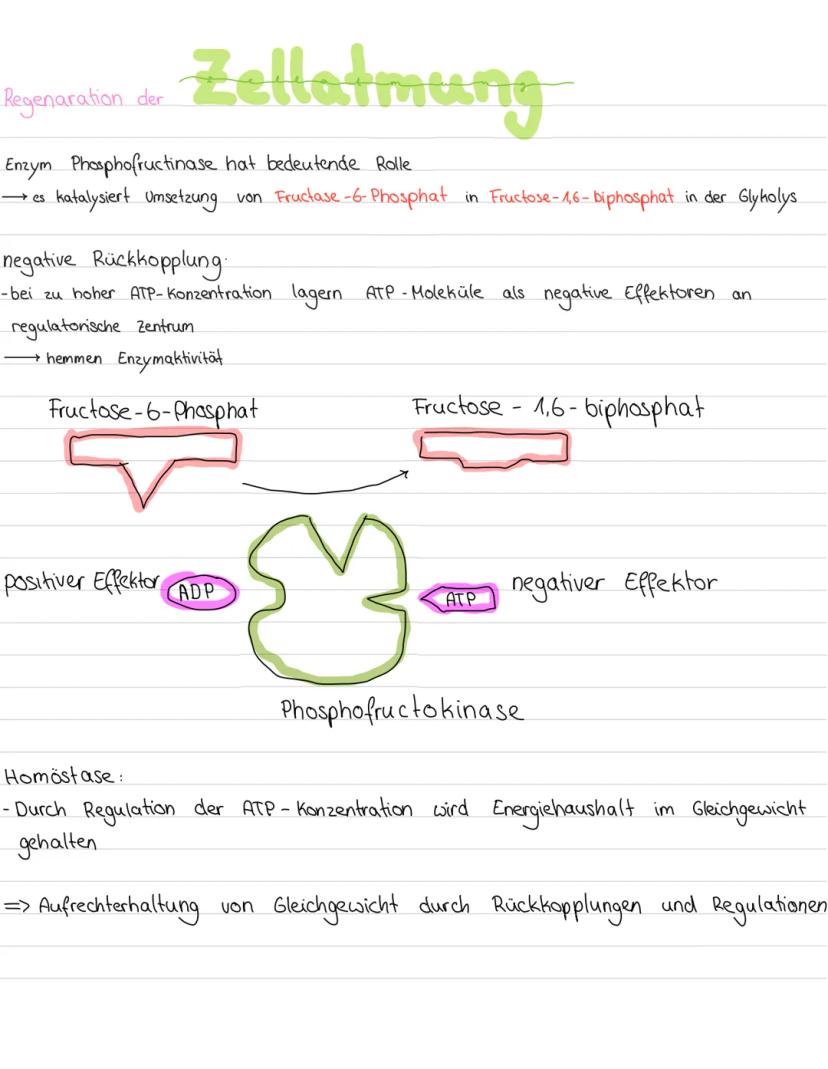 Regenaration der Zellatmung
Enzym Phosphofructinase hat bedeutende Rolle
→ es katalysiert Umsetzung von Fructase-6-Phosphat in Fructose-1,6-biphosphat in der Glykolys
negative Rückkopplung:
-bei zu hoher ATP-Konzentration lagern ATP-Moleküle als negative Effektoren an
regulatorische Zentrum
→ hemmen Enzymaktivität
Fructose-6-Phosphat Fructose - 1,6-biphosphat
positiver Effektor ADP ATP negativer Effektor
Phosphofructokinase
Homöstase:
- Durch Regulation der ATP-Konzentration wird Energiehaushalt im Gleichgewicht
gehalten
=> Aufrechterhaltung von Gleichgewicht durch Rückkopplungen und Regulationen